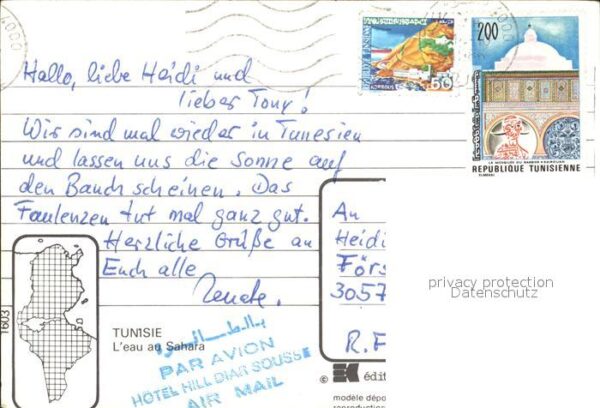 4000
200
60
KORBOUS
REPUBLIQUE TUNISIENNE
Hallo, liebe Heidi und
lieber Tony!
Wir sind mal wieder in Tunesien
und lassen uns die Sonne auf
den Bauch scheinen. Das
Faulenzen tut mal ganz gut.
Herzliche Grüße an
Euch alle
Renate.
An
Heidi
Förs
3057
R.F
privacy protection
Datenschutz
1603
TUNISIE
L'eau au Sahara
بالطائرة
PAR AVION
HOTEL HILL DIAR SOUSSE
AIR MAIL
© édit
modèle dépo
reproduction